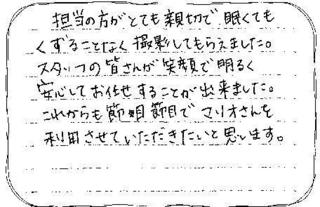 担当の方がとても親切で眠くても
くずることなく撮影してもらえました。
スタッフの皆さんが笑顔で明るく
安心してお任せすることが出来ました。
これからも節目節目でマリオさんを
利用させていただきたいと思います。